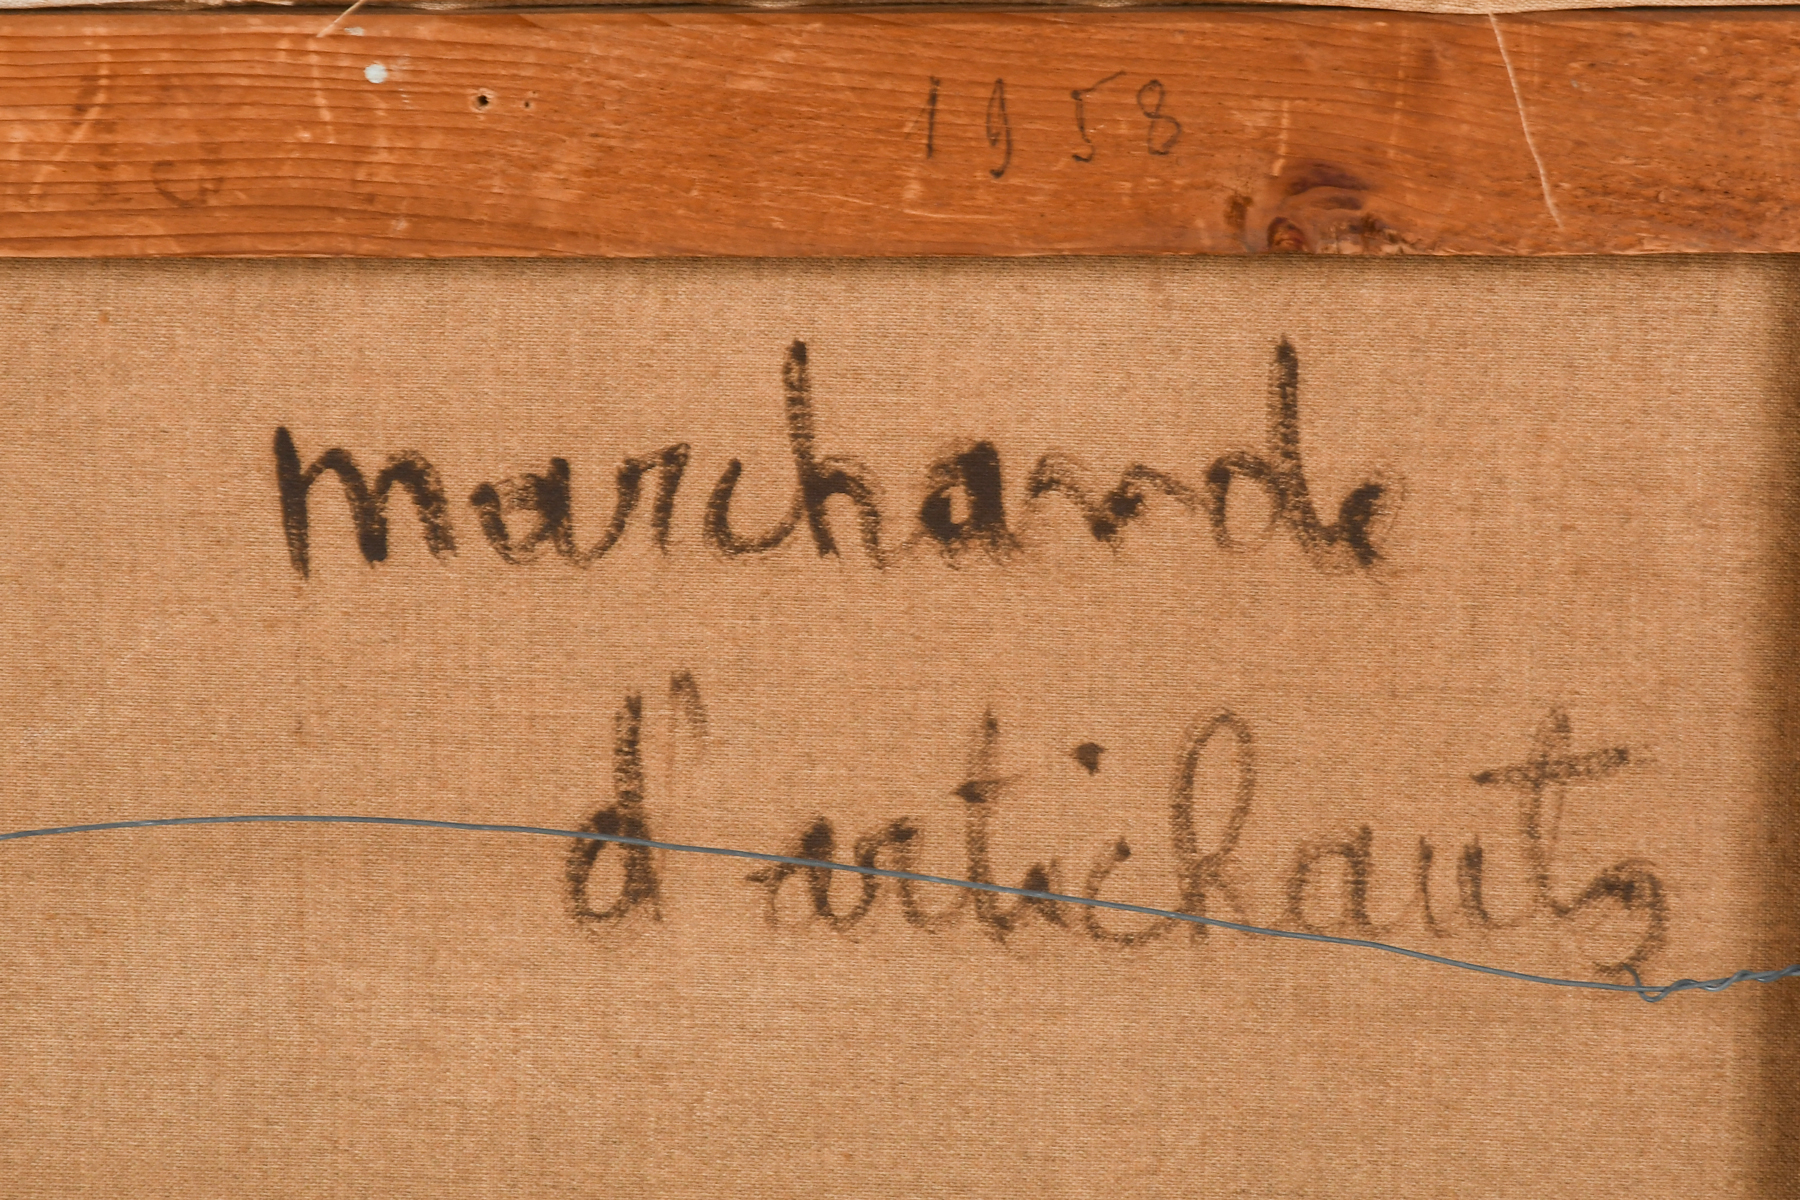 1958
marchande
d'artichauts